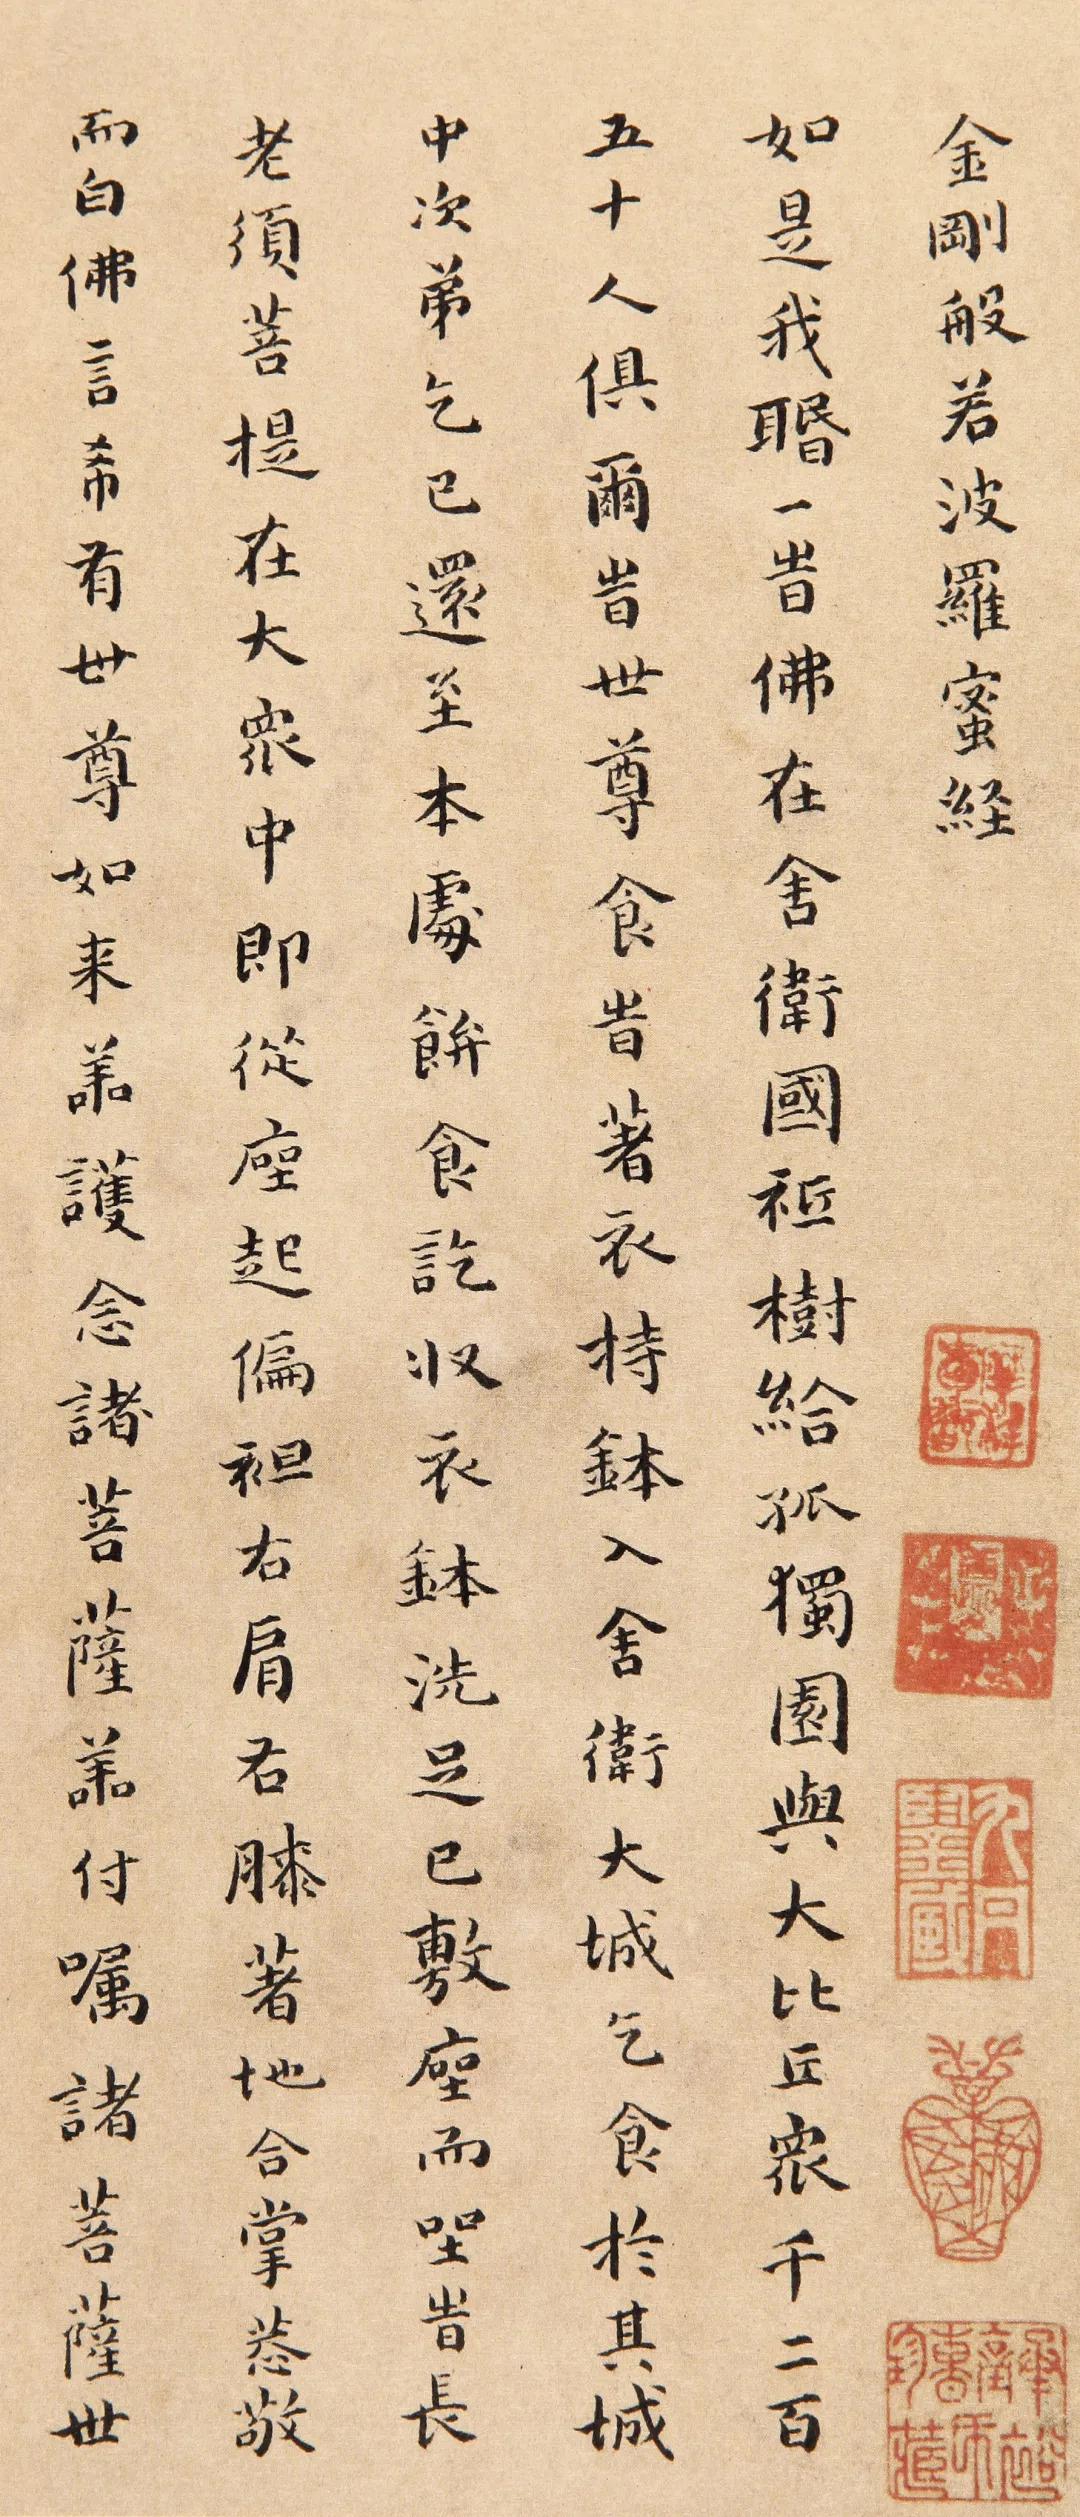 金剛般若波羅蜜経
如是我聞一旹佛在舍衛國祗樹給孤獨園與大比丘衆千二百
五十人俱爾旹世尊食旹著衣持鉢入舍衛大城乞食於其城
中次弟乞已還至本處餅食訖收衣鉢洗足已敷座而坐旹長
老須菩提在大衆中即從座起偏袒右肩右膝著地合掌恭敬
而白佛言希有世尊如来善護念諸菩薩善付嘱諸菩薩世